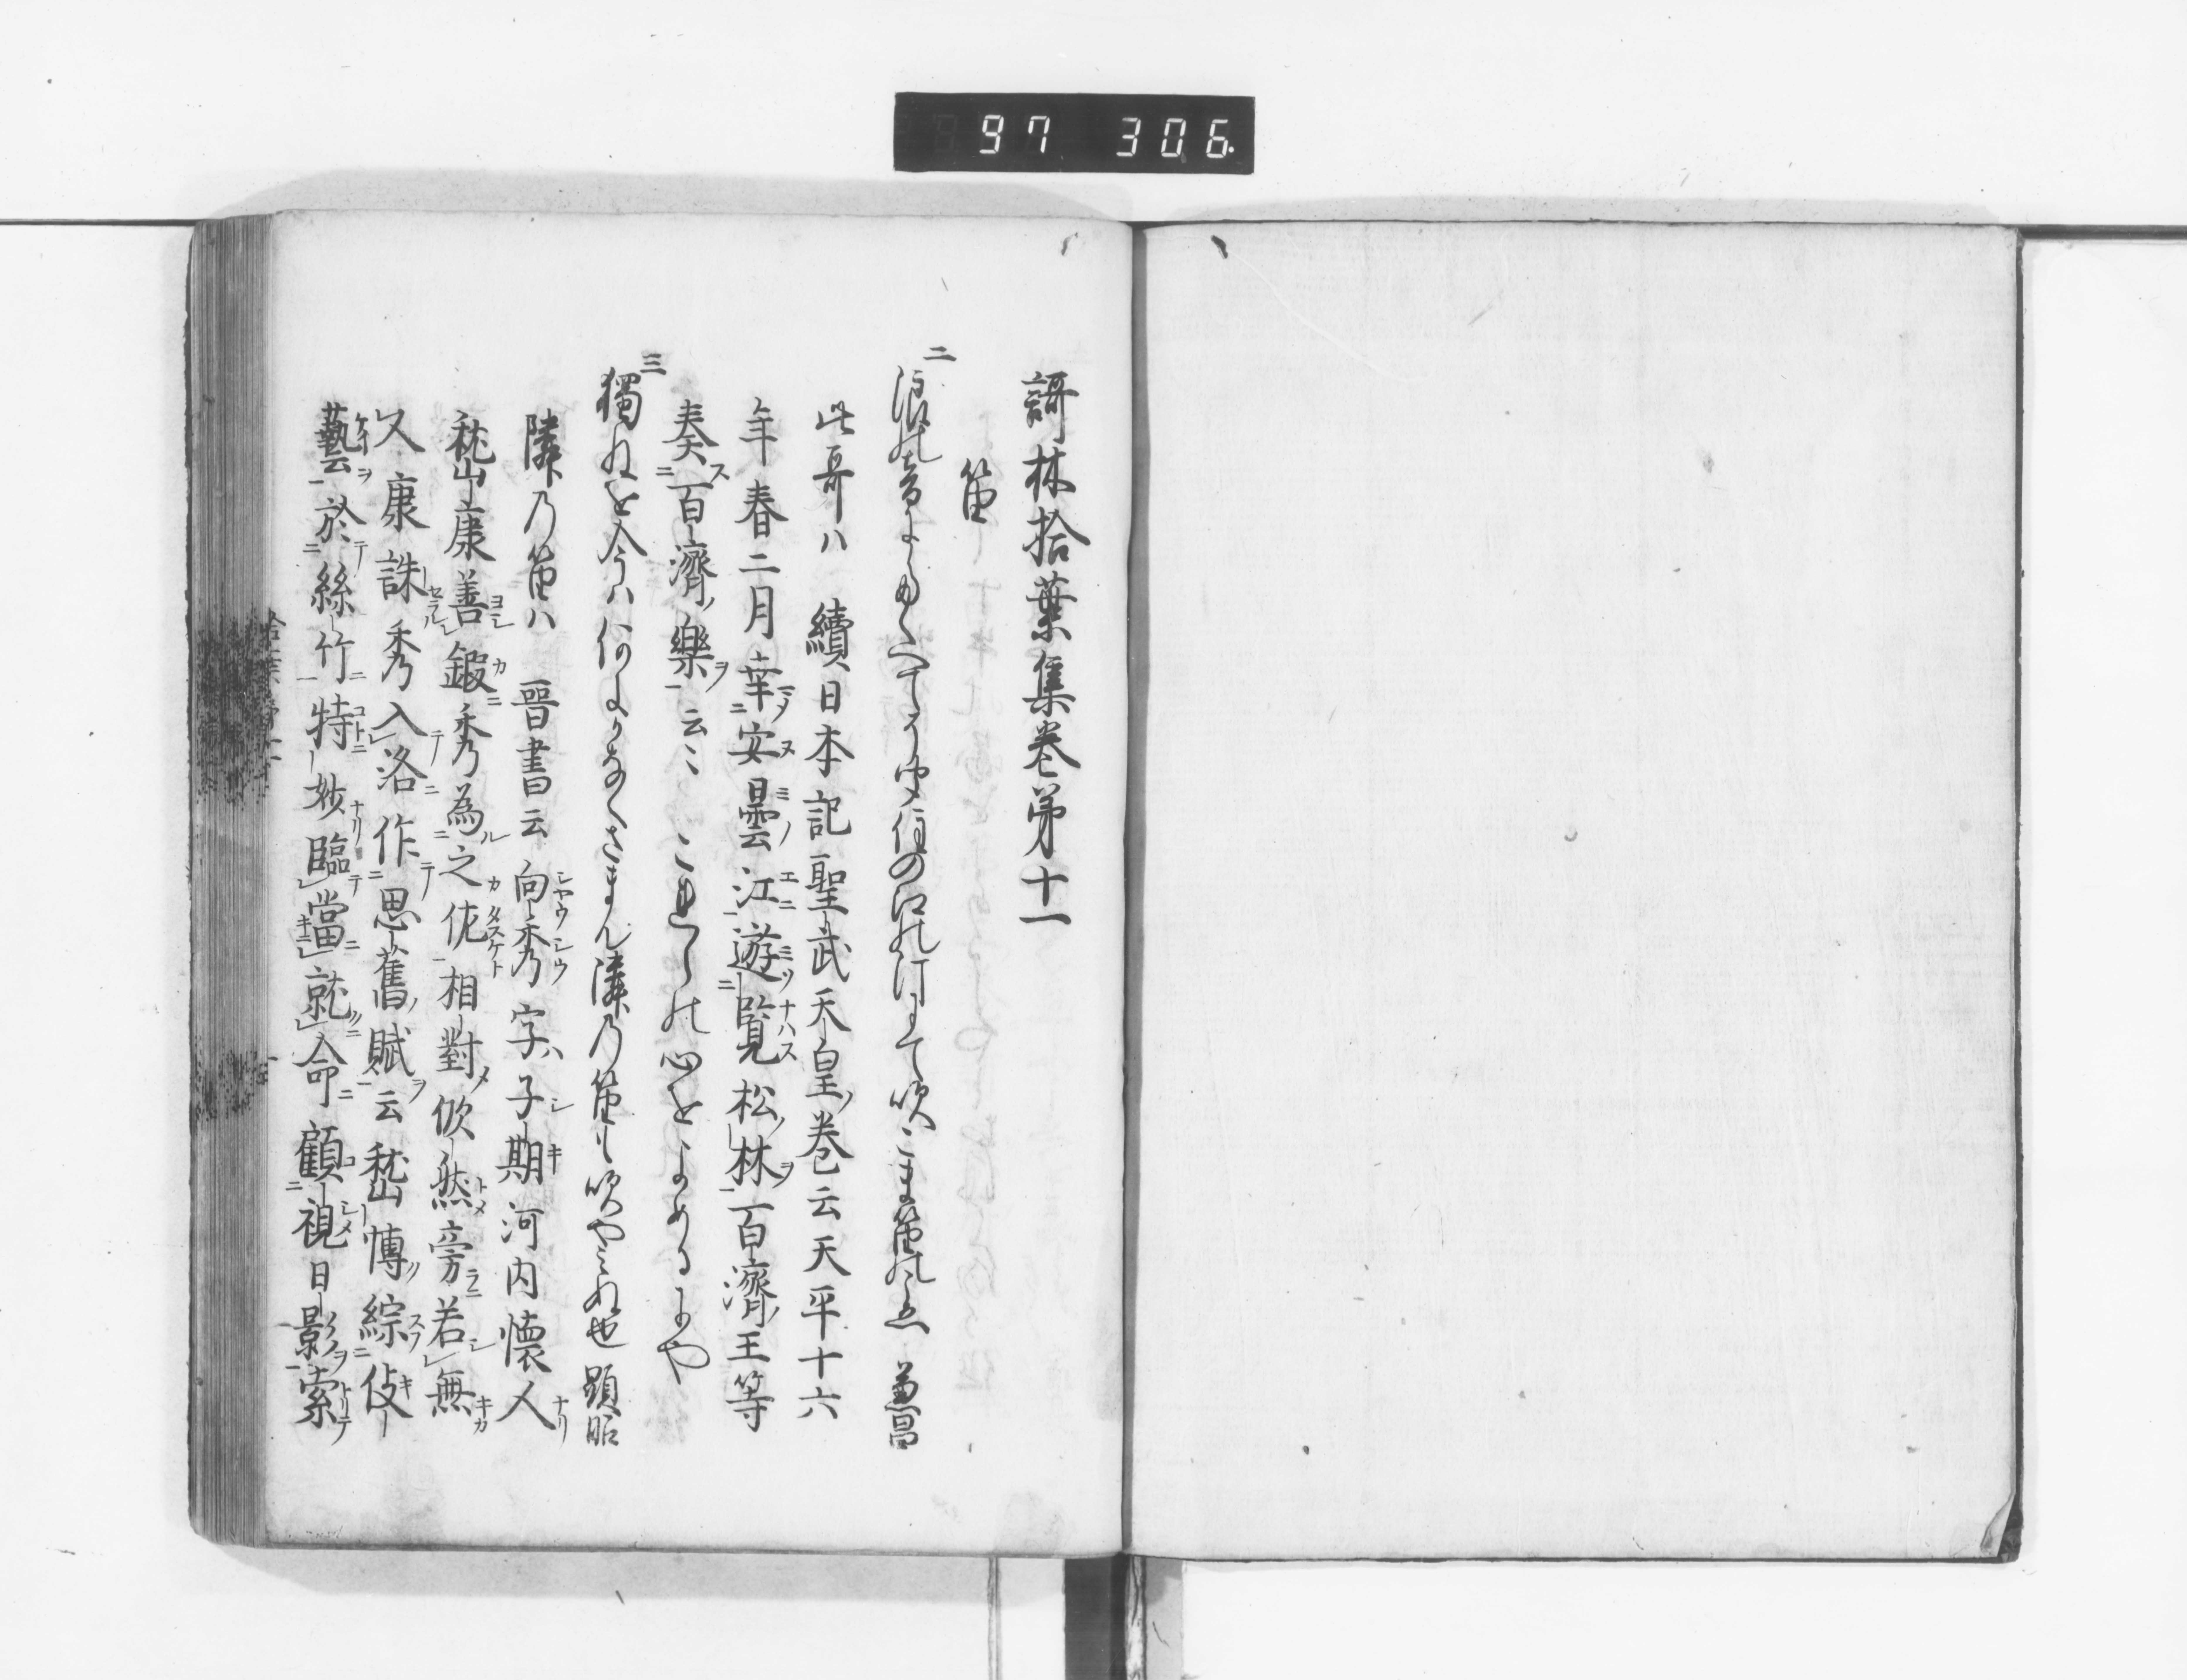 97 306.
謌林拾葉集巻第十一
笛
二
浪の音にたくへてそ聞住の江の汀にて吹こま笛のこゑ 兼昌
此哥ハ 續日本記聖武天皇ノ巻云天平十六
年春二月幸安曇江遊覧松林百濟王等
奏百濟ノ樂云〻 これらの心をよめるにや
三
獨ぬを今ハ何によりなくさまん隣乃笛も吹やミぬ也 顕昭
隣乃笛ハ 晋書云向秀字ハ子期河内懐人
嵆康善鍜秀為之佐相對欣然旁若無
又康誅秀入洛作思舊賦云嵆博綜伎
藝於絲竹特妙臨當就命顧視日影索